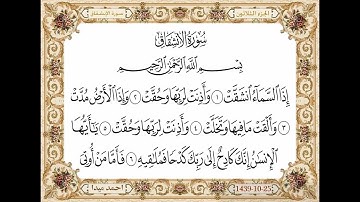 الجزء الثلاثون
سورة الانشقاق
سُورَةُ الِانْشِقَاقِ
بِسْمِ اللَّهِ الرَّحْمَٰنِ الرَّحِيمِ
إِذَا السَّمَاءُ انْشَقَّتْ ١ وَأَذِنَتْ لِرَبِّهَا وَحُقَّتْ ٢ وَإِذَا الْأَرْضُ مُدَّتْ
٣ وَأَلْقَتْ مَا فِيهَا وَتَخَلَّتْ ٤ وَأَذِنَتْ لِرَبِّهَا وَحُقَّتْ ٥ يَا أَيُّهَا
الْإِنْسَٰنُ إِنَّكَ كَادِحٌ إِلَىٰ رَبِّكَ كَدْحًا فَمُلَٰقِيهِ ٦ فَأَمَّا مَنْ أُوتِيَ
1439-10-25
احمد ميدا